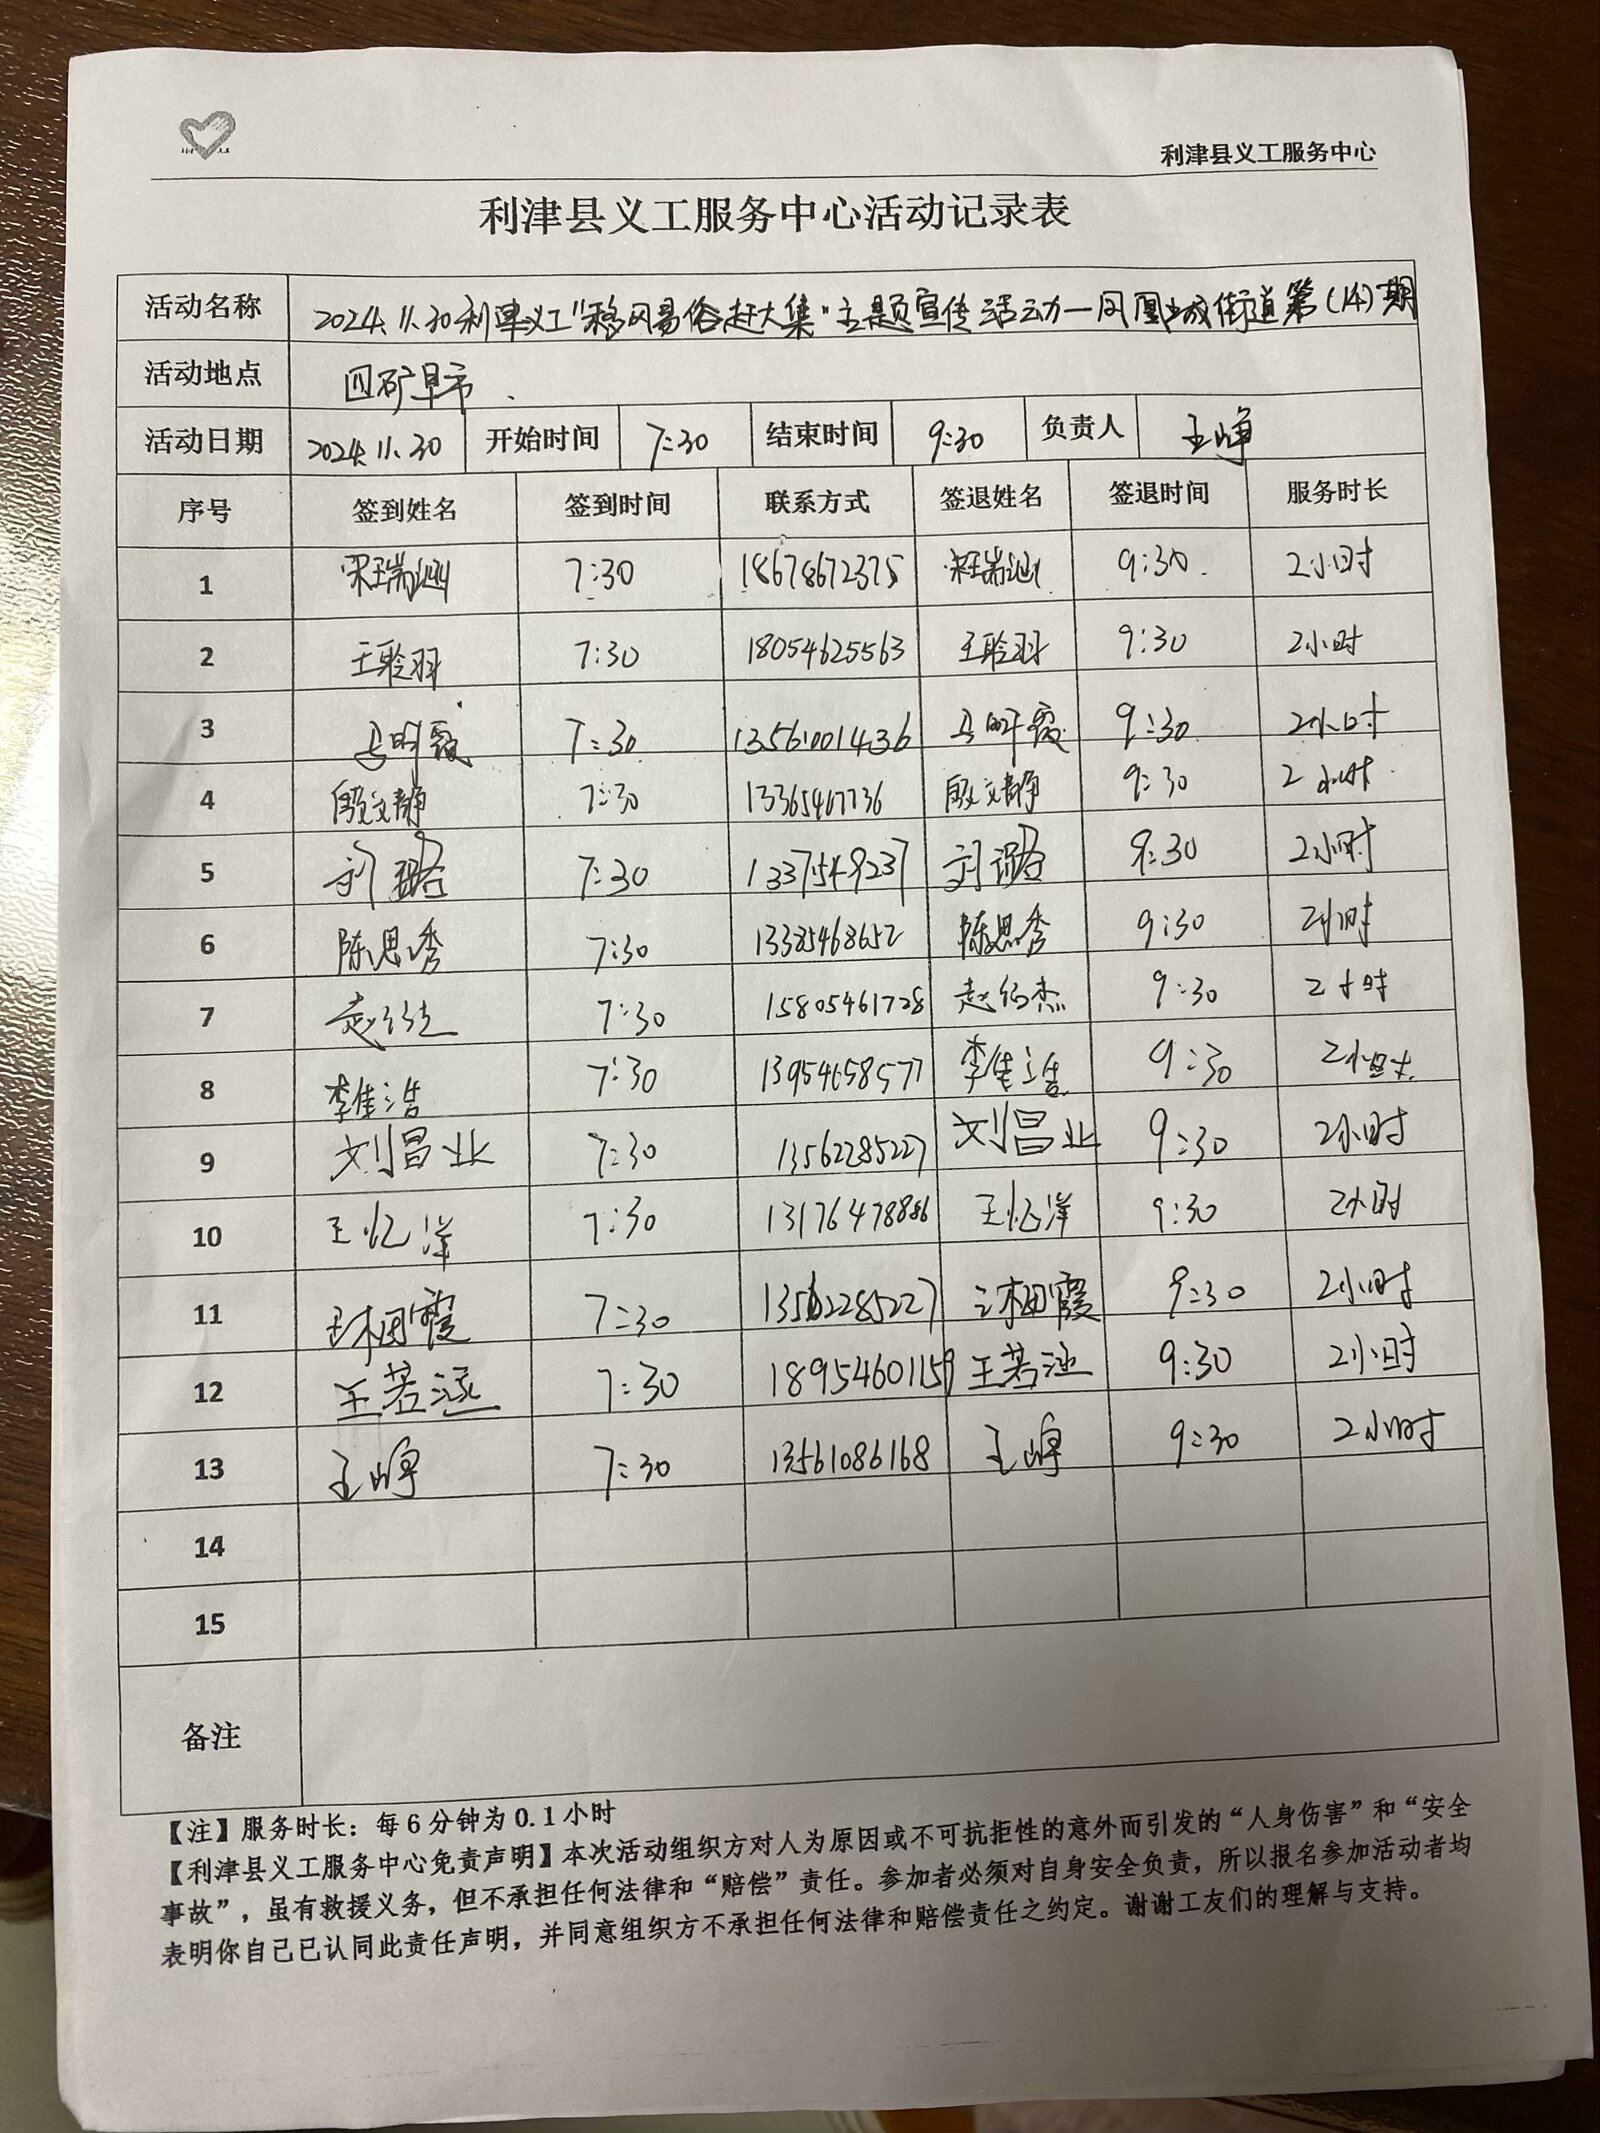 利津县义工服务中心
利津县义工服务中心活动记录表
活动名称 2024.11.30利津义工"移风易俗赶大集"主题宣传活动—凤凰城街道第(14)期
活动地点 四矿早市.
活动日期 2024.11.30 开始时间 7:30 结束时间 9:30 负责人 王峥
序号 签到姓名 签到时间 联系方式 签退姓名 签退时间 服务时长
1 宋瑞迪 7:30 18678672375 宋瑞迪 9:30. 2小时
2 王聆羽 7:30 18054625563 王聆羽 9:30 2小时
3 马明霞 7:30 13561001436 马明霞 9:30 2小时
4 殷文静 7:30 13365467736 殷文静 9:30 2小时.
5 刘璐 7:30 13375469237 刘璐 9:30 2小时
6 陈思秀 7:30 13385468652 陈思秀 9:30 2小时
7 7:30 15805461728 9:30 2小时
8 李隹浩 7:30 13954658577 李隹浩 9:30 2小时
9 刘昌业 7:30 13562285227 刘昌业 9:30 2小时
10 王忆洋 7:30 13176478886 王忆洋 9:30 2小时
11 霞 7:30 13562285227 霞 9:30 2小时
12 王若涵 7:30 18954601159 王若涵 9:30 2小时
13 王峥 7:30 13561086168 王峥 9:30 2小时
14
15
备注
【注】服务时长：每6分钟为0.1小时
【利津县义工服务中心免责声明】本次活动组织方对人为原因或不可抗拒性的意外而引发的“人身伤害”和“安全
事故”，虽有救援义务，但不承担任何法律和“赔偿”责任。参加者必须对自身安全负责，所以报名参加活动者均
表明你自己已认同此责任声明，并同意组织方不承担任何法律和赔偿责任之约定。谢谢工友们的理解与支持。